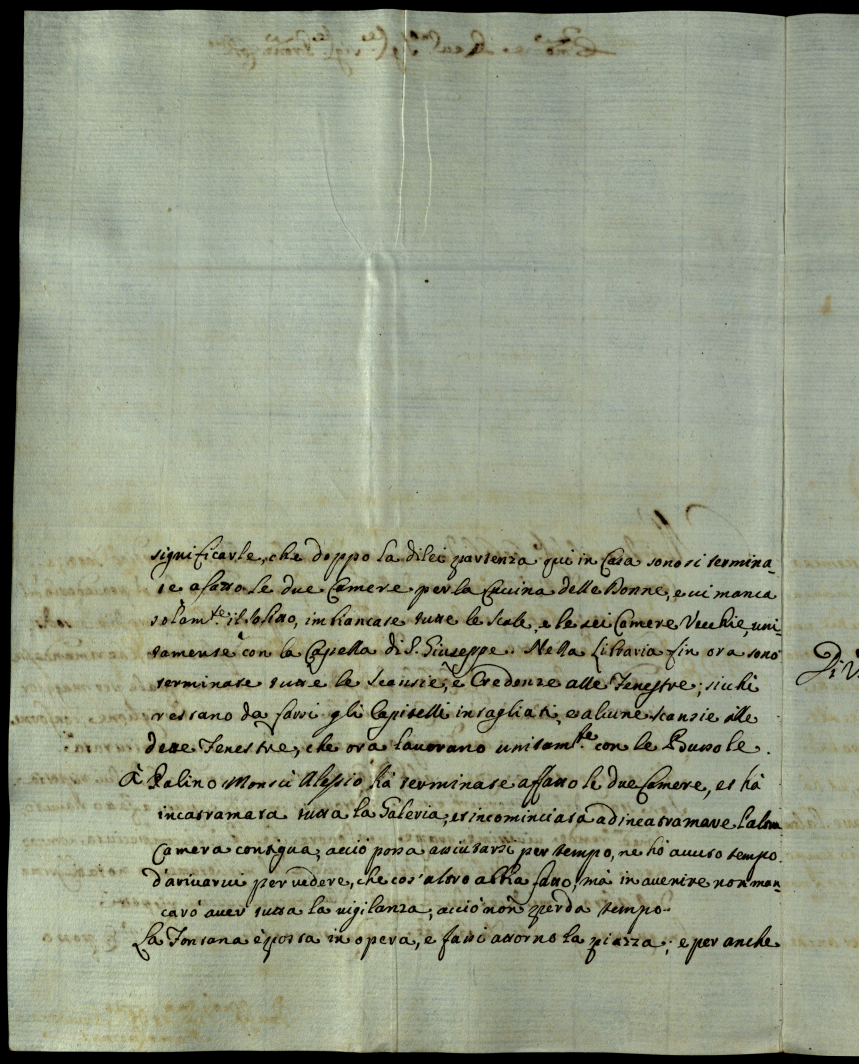 significarle, che doppo la dilei partenza qui in Casa sonosi termina-
te afatto le due Camere per la Cucina delle Donne, e vi manca
solam.te il solito, imbiancate tutte le Scale, e le sei Camere Vecchie, uni-
tamente con la Capella di S. Giuseppe. Nella Libraria fin ora sono
terminate tutte le Scansie, e Credenze alle Fenestre; sichè
restano da farsi gli Capitelli intagliati, e alcune scansie alle
dette Fenestre, che ora lavorano unitam.te con le Bussole.
à Palino Monsù Alessio hà terminate affatto le due Camere, et hà
incatramata tutta la Galeria, et incominciata ad incatramare l'altra
Camera contigua, acciò possa asciutarsi per tempo, ne hò avuto tempo
d'arivarvi per vedere, che cos'altro abbia fatto, mà in avenire non man-
carò aver tutta la vigilanza, acciò non perda tempo.
La Fontana è posta in opera, e fassi attorno la piazza; e per anche
Di V.